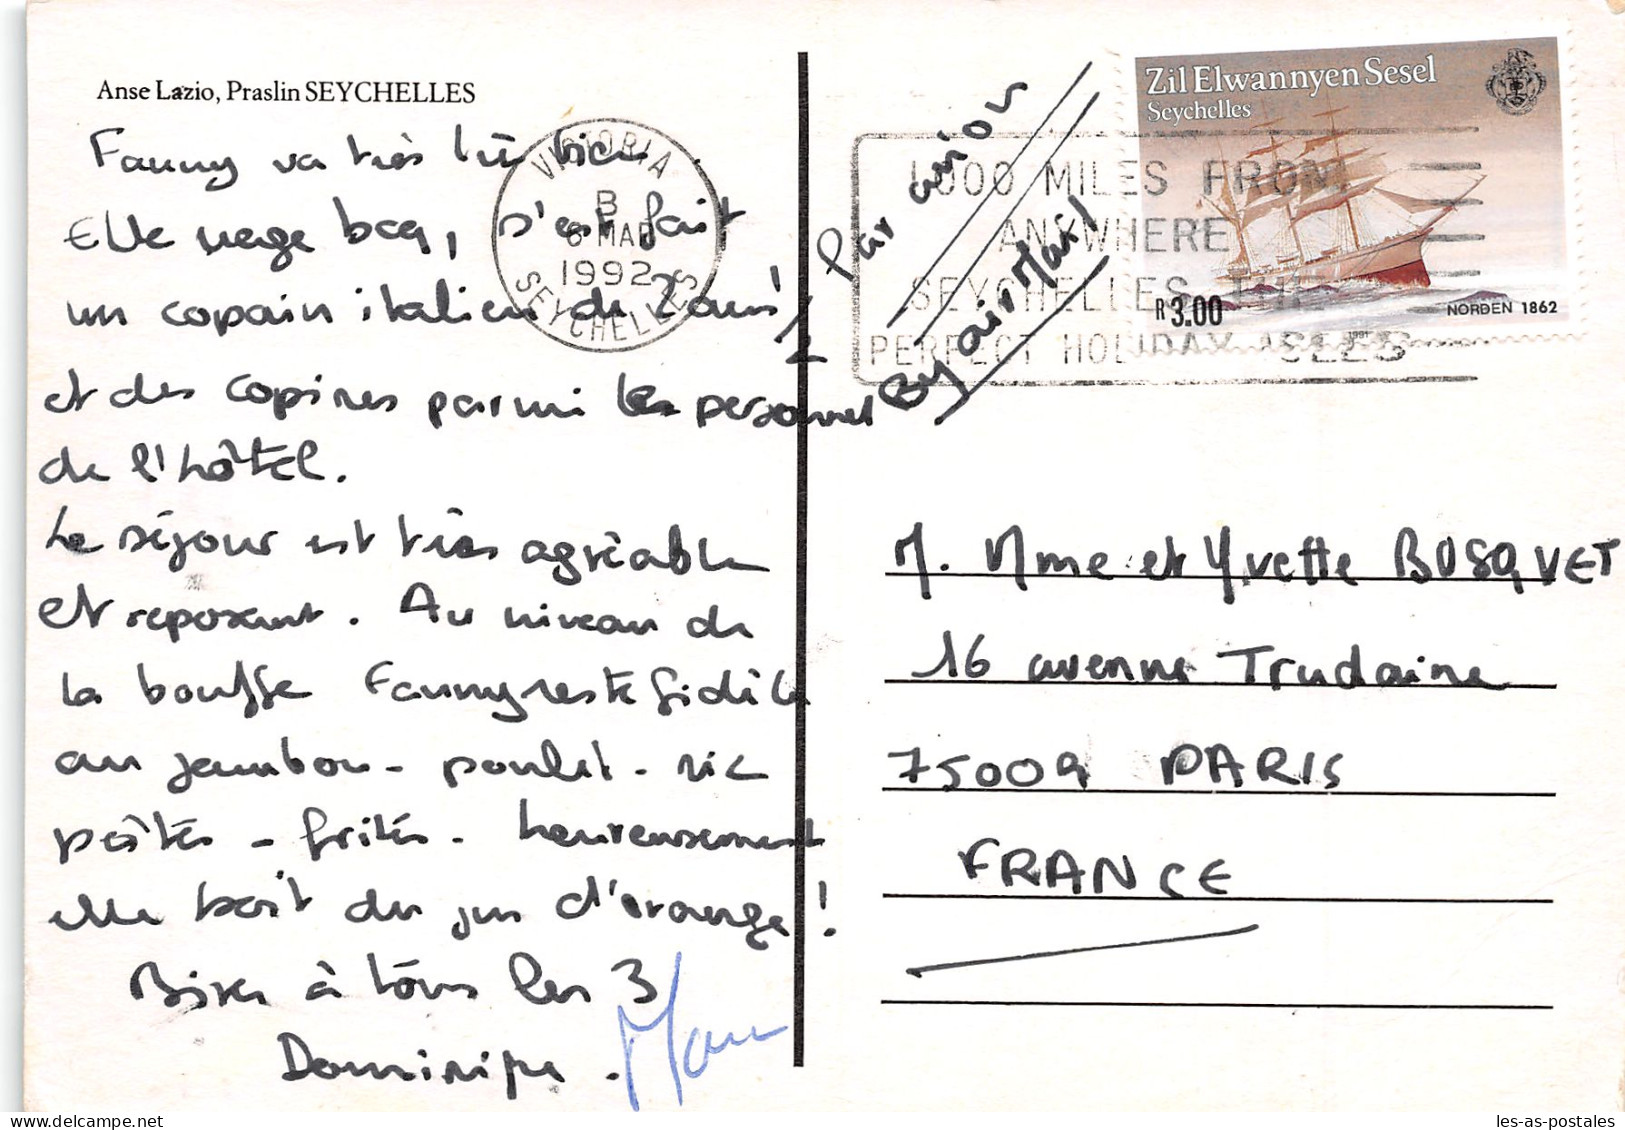 Anse Lazio, Praslin SEYCHELLES
Fanny va très très bien.
Elle nage bcq, s'est fait
un copain italien de 2 ans 1/2
et des copines parmi les personnel
de l'hôtel.
Le séjour est très agréable
et reposant. Au niveau de
la bouffe Fanny reste fidèle
au jambon - poulet - riz
pâtes - frites. heureusement
elle boit du jus d'orange !
Bises à tous les 3
Dominique.
VICTORIA
B
6 MAR
1992
SEYCHELLES
Par avion
By air Mail
1,000 MILES FROM
ANYWHERE
SEYCHELLES THE
PERFECT HOLIDAY ISLES
Zil Elwannyen Sesel
Seychelles
R 3.00
NORDEN 1862
1991
M. Mme et Yvette BOSQVET
16 avenue Trudaine
75009 PARIS
FRANCE
les-as-postales